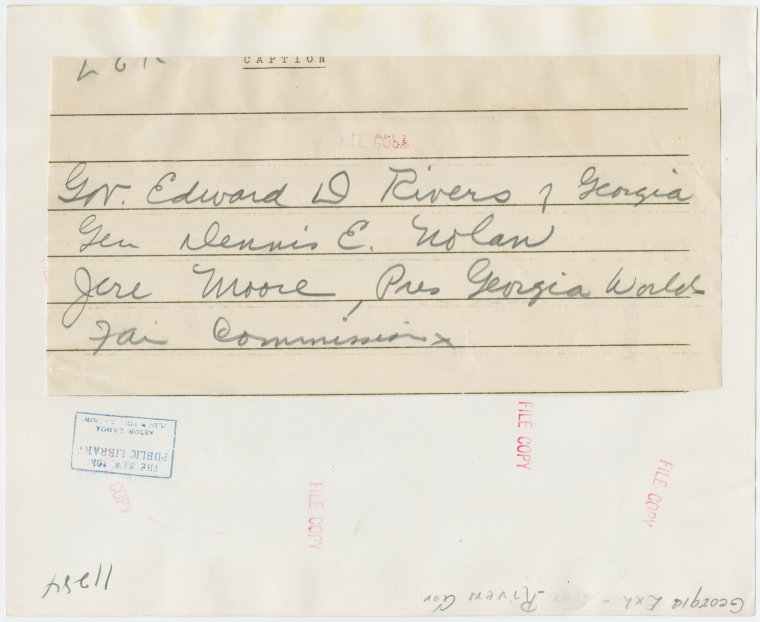 CAPTION
FILE COPY
Gov. Edward D Rivers of Georgia
Gen Dennis E. Nolan
Jere Moore, Pres Georgia Worlds
Fair Commission x
FILE COPY
THE NEW YORK
PUBLIC LIBRARY
ASTOR LENOX
COPY
FILE COPY
FILE COPY
11254
Georgia Exh - Rivers Gov.